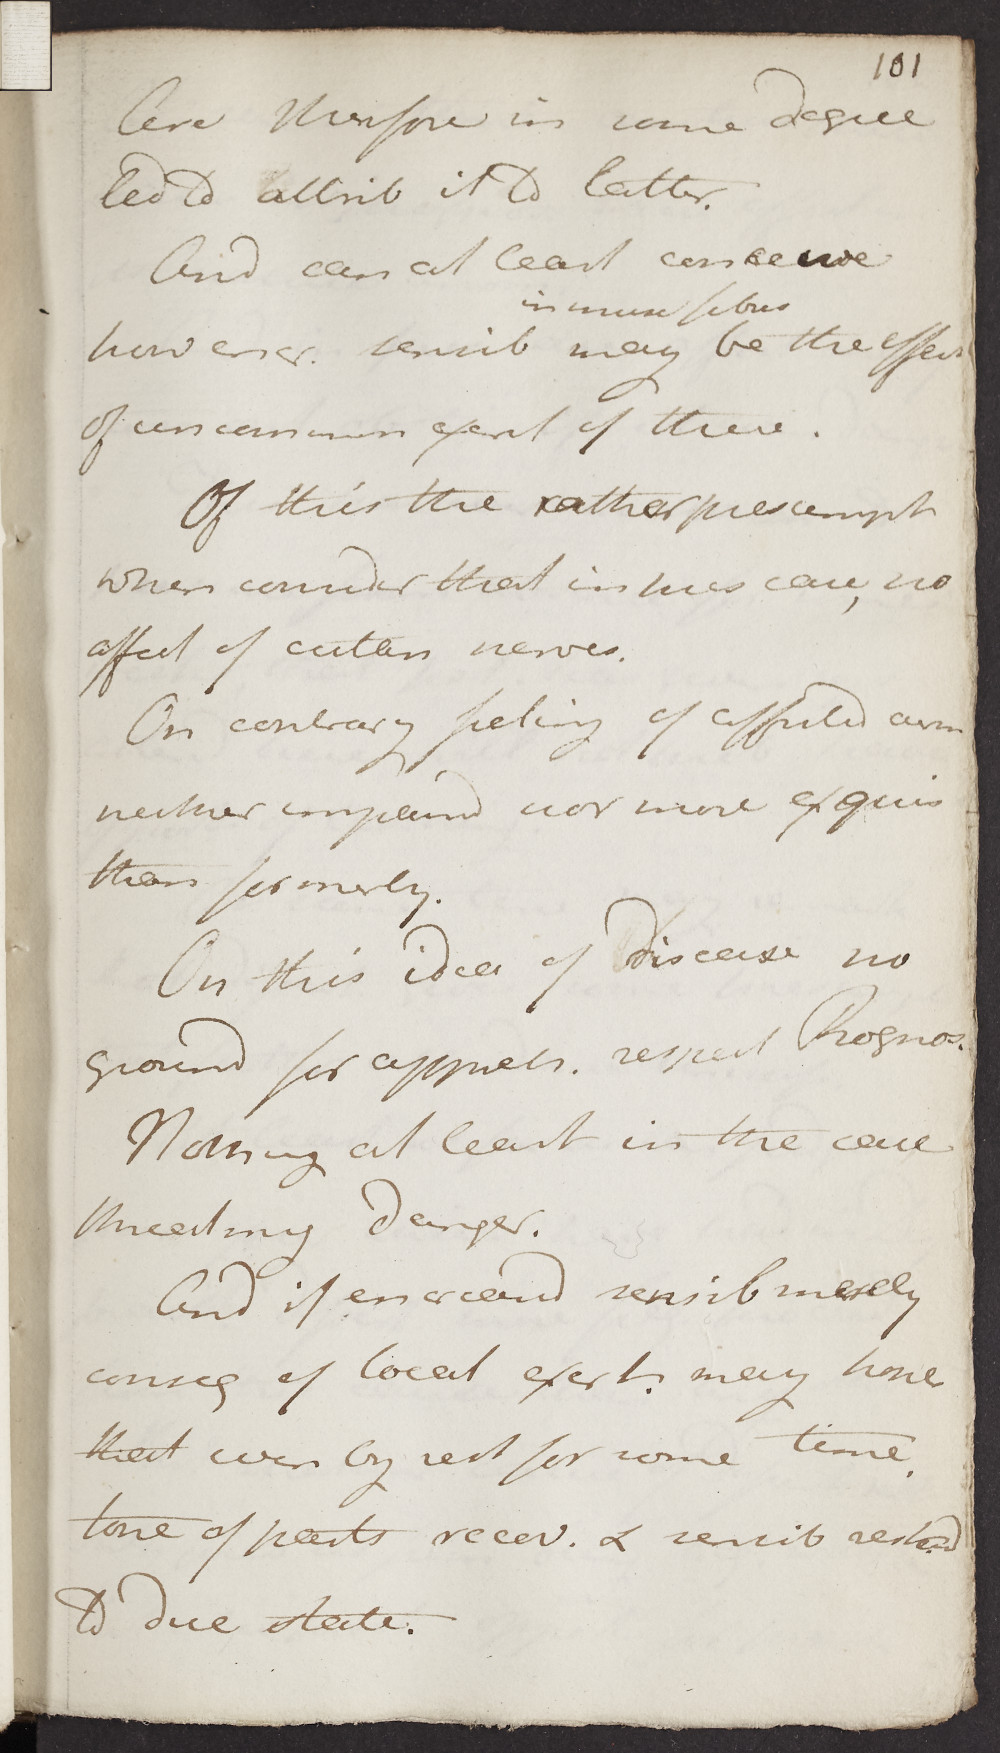 101
Are therefore in some degree
led to attrib it to latter.
And can at least conceive
in musc fibres
how encr. sensib may be the effect
of uncommon exert of these.
Of this the rather presumpt
when consider that in pres case, no
affect of cutan nerves.
On contrary feeling of affected arm
neither impaird nor more exquis
than formerly.
On this idea of disease no
ground for appreh. respect Prognos.
Nothing at least in the case
threatning danger.
And if encreasd sensib merely
conseq of local exert. may hope
that even by rest for some time,
tone of parts recov. & sensib restord
to due state.